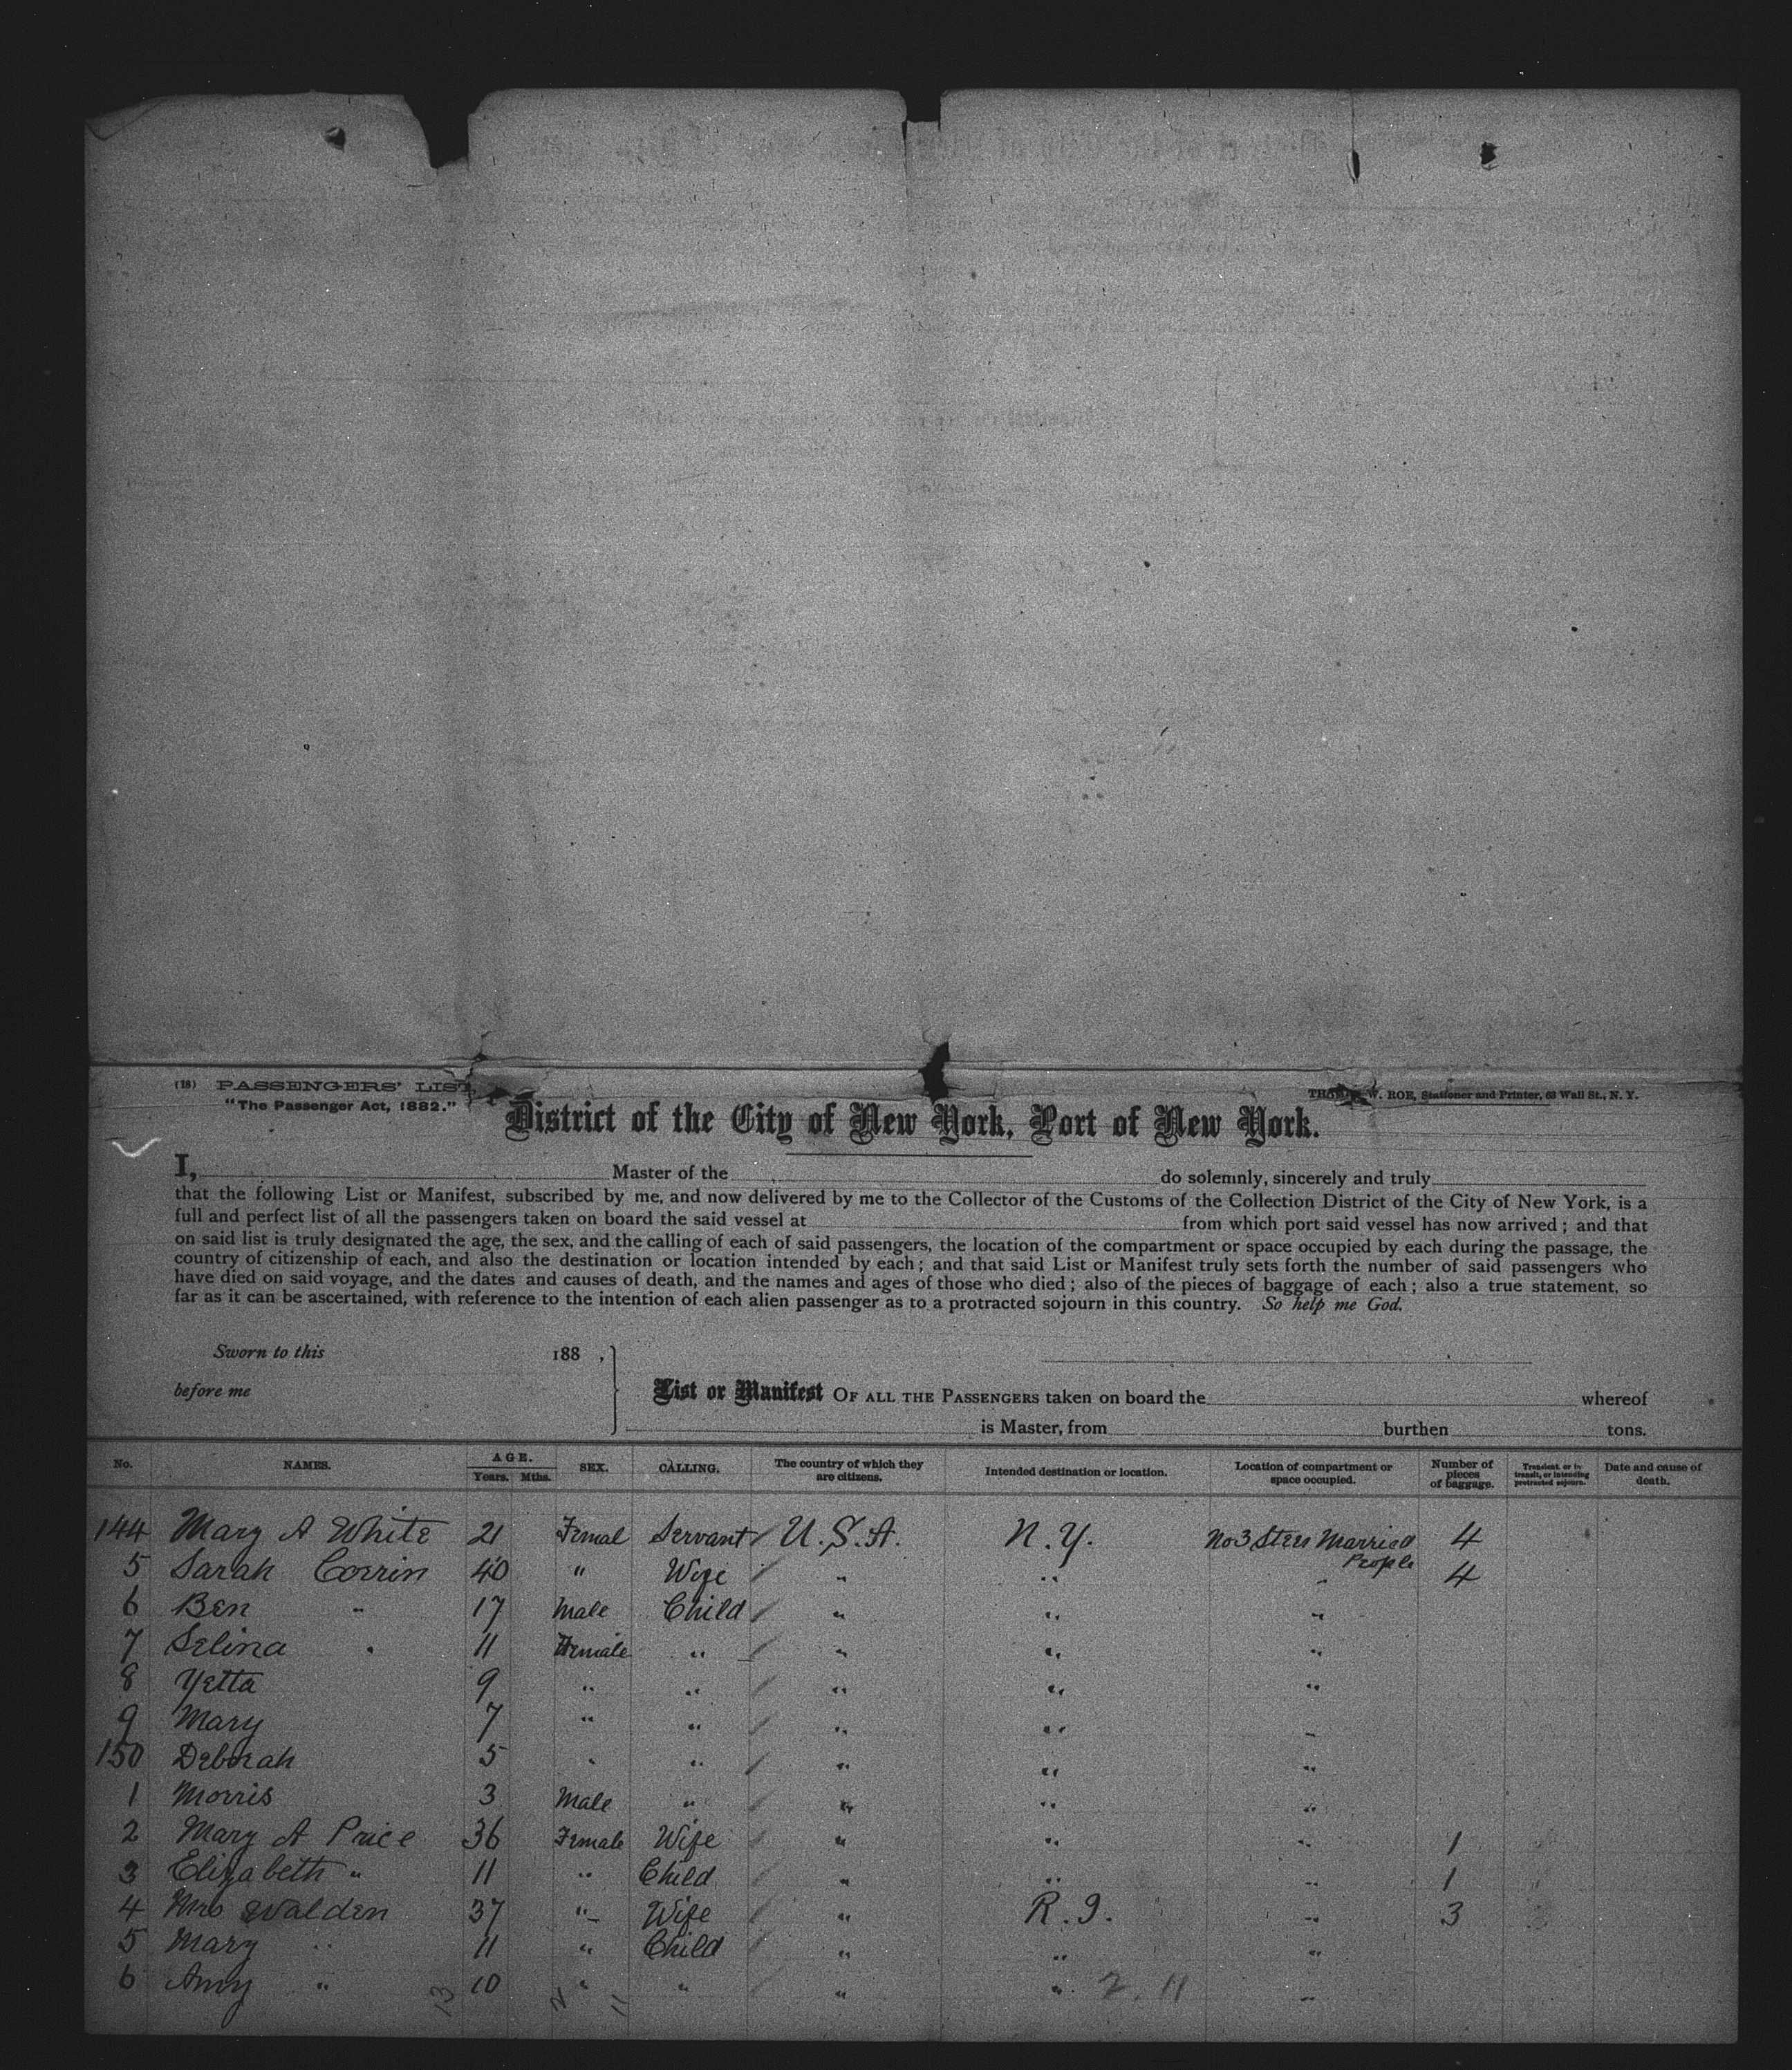 (18) PASSENGERS' LIST.
"The Passenger Act, 1882."
W. ROE, Stationer and Printer, 63 Wall St., N. Y.
District of the City of New York, Port of New York.
I, Master of the do solemnly, sincerely and truly
that the following List or Manifest, subscribed by me, and now delivered by me to the Collector of the Customs of the Collection District of the City of New York, is a
full and perfect list of all the passengers taken on board the said vessel at from which port said vessel has now arrived; and that
on said list is truly designated the age, the sex, and the calling of each of said passengers, the location of the compartment or space occupied by each during the passage, the
country of citizenship of each, and also the destination or location intended by each; and that said List or Manifest truly sets forth the number of said passengers who
have died on said voyage, and the dates and causes of death, and the names and ages of those who died; also of the pieces of baggage of each; also a true statement, so
far as it can be ascertained, with reference to the intention of each alien passenger as to a protracted sojourn in this country. So help me God.
Sworn to this 188 ,
before me
List or Manifest OF ALL THE PASSENGERS taken on board the whereof
is Master, from burthen tons.
No. NAMES. AGE. Years. Mths. SEX. CALLING. The country of which they are citizens. Intended destination or location. Location of compartment or space occupied. Number of pieces of baggage. Transient, or in transit, or intending protracted sojourn. Date and cause of death.
144 Mary A White 21 Femal Servant U.S.A. N.Y. No 3 Steer Married People 4
5 Sarah Corrin 40 " Wife " " " 4
6 Ben " 17 Male Child " " "
7 Selina " 11 Female " " " "
8 Yetta 9 " " " " "
9 Mary 7 " " " "
150 Deborah 5 " " " " "
1 Morris 3 Male " " " "
2 Mary A Price 36 Female Wife " " " 1
3 Elizabeth " 11 " Child " " " 1
4 Mrs Walden 37 " Wife " R.I. " 3
5 Mary " 11 " Child " " "
6 Amy " 10 " " " "
13 2 11 2. 11